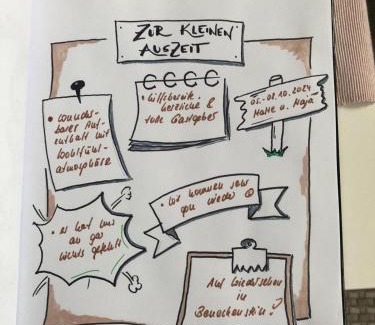 ZUR KLEINEN
AUSZEIT
• wunder-
barer Auf-
enthalt mit
Wohlfühl-
atmosphäre
• Hilfsbereite,
herzliche &
tolle Gastgeber
05.-08.10.2024
Malte u. Maja
• es hat uns
an gar
nichts gefehlt
• wir kommen sehr
gern wieder ☺
Auf Wiedersehen
in
Benneckenstein!